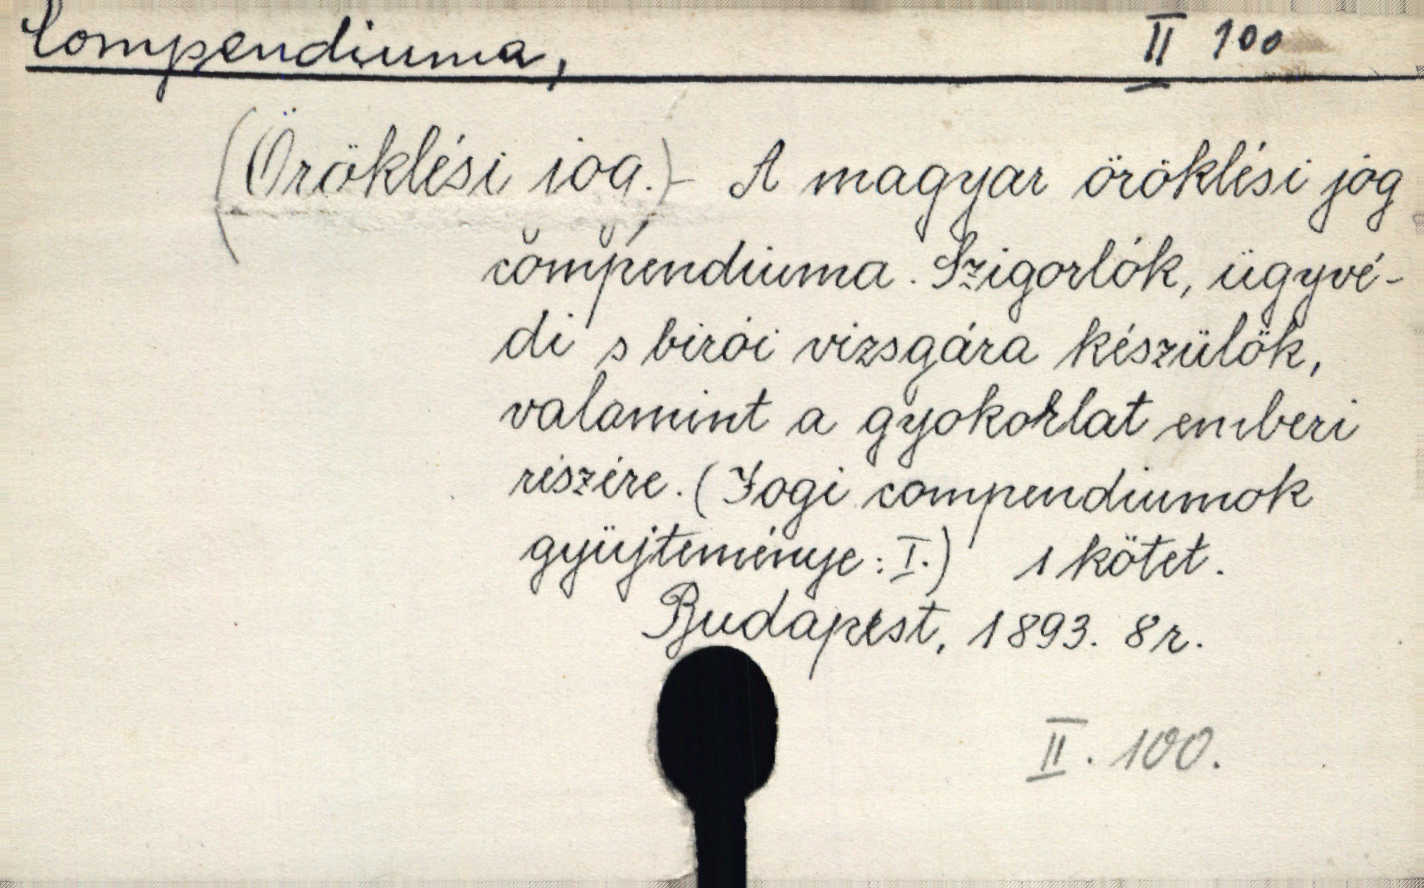 Compendiuma, II 100
(Öröklési jog.) - A magyar öröklési jog
compendiuma. Szigorlók, ügyvé-
di s birói vizsgára készülők,
valamint a gyokorlat emberi
részére. (Jogi compendiumok
gyüjteménye: I.) 1 kötet.
Budapest, 1893. 8r.
II. 100.